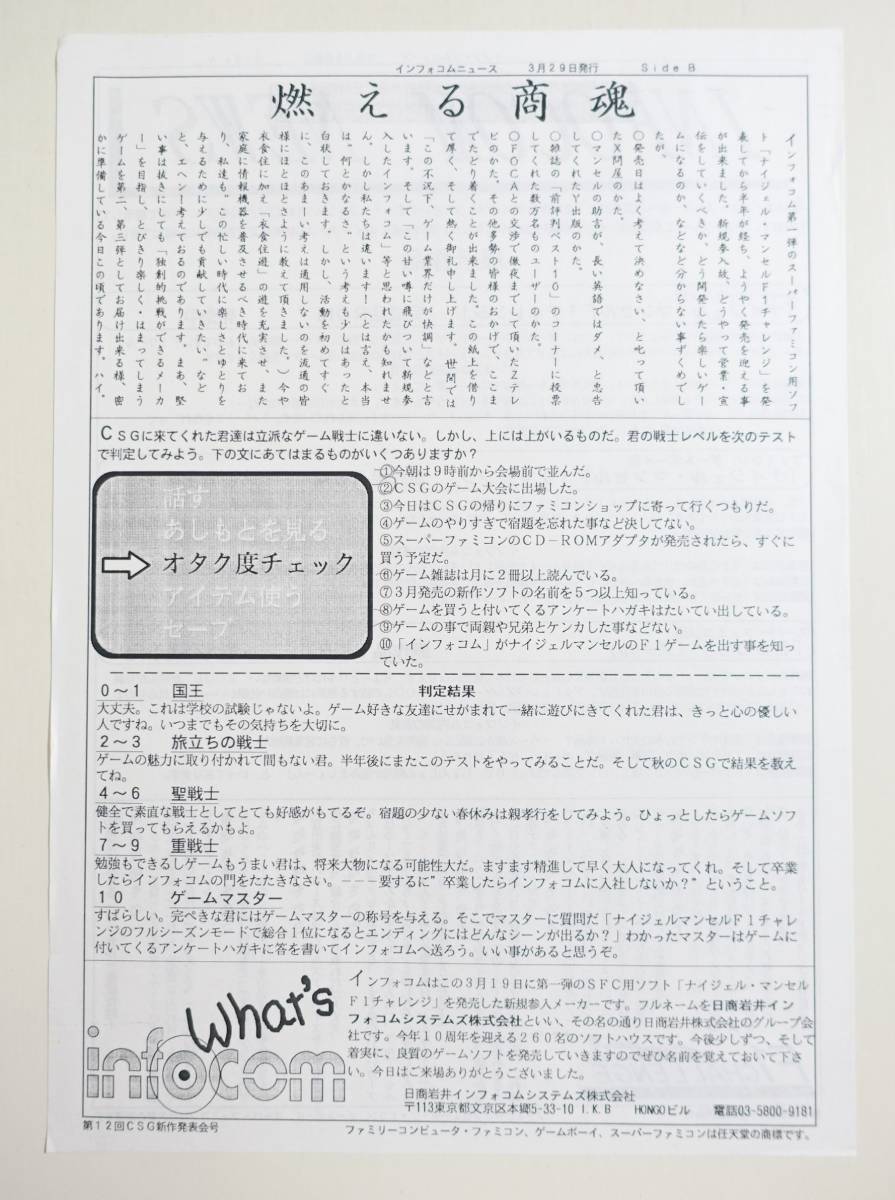 インフォコムニュース　３月２９日発行　Ｓｉｄｅ Ｂ
燃える商魂
インフォコム第一弾のスーパーファミコン用ソフ
ト「ナイジェル・マンセルＦ１チャレンジ」を発
表してから半年が経ち、ようやく発売を迎える事
が出来ました。新規参入故、どうやって営業・宣
伝をしていくべきか、どう開発したら楽しいゲー
ムになるのか、などなど分からない事ずくめでし
たが、
〇発売日はよく考えて決めなさい、と叱って頂い
たＸ問屋のかた。
〇マンセルの助言が、長い英語ではダメ、と忠告
してくれたＹ出版のかた。
〇雑誌の「前評判ベスト１０」のコーナーに投票
してくれた数万名ものユーザーのかた。
〇ＦＯＣＡとの交渉で徹夜までして頂いたＺテレ
ビのかた。その他多勢の皆様のおかげで、ここま
でたどり着くことが出来ました。この紙上を借り
て厚く、そして熱く御礼申し上げます。世間では
「この不況下、ゲーム業界だけが快調」などと言
います。そして「この甘い噂に飛びついて新規参
入したインフォコム」等と思われたかも知れませ
ん。しかし私たちは違います！（とは言え、本当
は“何とかなるさ”という考えも少しはあったと
白状しておきます。しかし、活動を初めてすぐ
に、このあまーい考えは通用しないのを流通の皆
様にほとほとさように教えて頂きました。）今や
衣食住に加え「衣食住遊」の遊を充実させ、また
家庭に情報機器を普及させるべき時代に来てお
り、私達も“この忙しい時代に楽しさとゆとりを
与えるために少しでも貢献していきたい。”など
と、エヘン！考えておるのであります。まあ、堅
い事は抜きにしても「独創的挑戦ができるメーカ
ー」を目指し、とびきり楽しく・はまってしまう
ゲームを第二、第三弾としてお届け出来る様、密
かに準備している今日この頃であります。ハイ。
ＣＳＧに来てくれた君達は立派なゲーム戦士に違いない。しかし、上には上がいるものだ。君の戦士レベルを次のテスト
で判定してみよう。下の文にあてはまるものがいくつありますか？
話す
あしもとを見る
⇨ オタク度チェック
アイテム使う
セーブ
①今朝は９時前から会場前で並んだ。
②ＣＳＧのゲーム大会に出場した。
③今日はＣＳＧの帰りにファミコンショップに寄って行くつもりだ。
④ゲームのやりすぎで宿題を忘れた事など決してない。
⑤スーパーファミコンのＣＤ－ＲＯＭアダプタが発売されたら、すぐに
買う予定だ。
⑥ゲーム雑誌は月に２冊以上読んでいる。
⑦３月発売の新作ソフトの名前を５つ以上知っている。
⑧ゲームを買うと付いてくるアンケートハガキはたいてい出している。
⑨ゲームの事で両親や兄弟とケンカした事などない。
⑩「インフォコム」がナイジェルマンセルのＦ１ゲームを出す事を知っ
ていた。
判定結果
０～１　国王
大丈夫。これは学校の試験じゃないよ。ゲーム好きな友達にせがまれて一緒に遊びにきてくれた君は、きっと心の優しい
人ですね。いつまでもその気持ちを大切に。
２～３　旅立ちの戦士
ゲームの魅力に取り付かれて間もない君。半年後にまたこのテストをやってみることだ。そして秋のＣＳＧで結果を教え
てね。
４～６　聖戦士
健全で素直な戦士としてとても好感がもてるぞ。宿題の少ない春休みは親孝行をしてみよう。ひょっとしたらゲームソフ
トを買ってもらえるかもよ。
７～９　重戦士
勉強もできるしゲームもうまい君は、将来大物になる可能性大だ。ますます精進して早く大人になってくれ。そして卒業
したらインフォコムの門をたたきなさい。－－－要するに”卒業したらインフォコムに入社しないか？”ということ。
１０　ゲームマスター
すばらしい。完ぺきな君にはゲームマスターの称号を与える。そこでマスターに質問だ「ナイジェルマンセルＦ１チャレ
ンジのフルシーズンモードで総合１位になるとエンディングにはどんなシーンが出るか？」わかったマスターはゲームに
付いてくるアンケートハガキに答を書いてインフォコムへ送ろう。いい事があると思うぞ。
What's
infocom
インフォコムはこの３月１９日に第一弾のＳＦＣ用ソフト「ナイジェル・マンセル
Ｆ１チャレンジ」を発売した新規参入メーカーです。フルネームを日商岩井イン
フォコムシステムズ株式会社といい、その名の通り日商岩井株式会社のグループ会
社です。今年１０周年を迎える２６０名のソフトハウスです。今後少しずつ、そして
着実に、良質のゲームソフトを発売していきますのでぜひ名前を覚えておいて下さ
い。今日はご来場ありがとうございました。
日商岩井インフォコムシステムズ株式会社
〒113東京都文京区本郷5-33-10 I.K.B　HONGOビル　電話03-5800-9181
第１２回ＣＳＧ新作発表会号
ファミリーコンピュータ・ファミコン、ゲームボーイ、スーパーファミコンは任天堂の商標です。